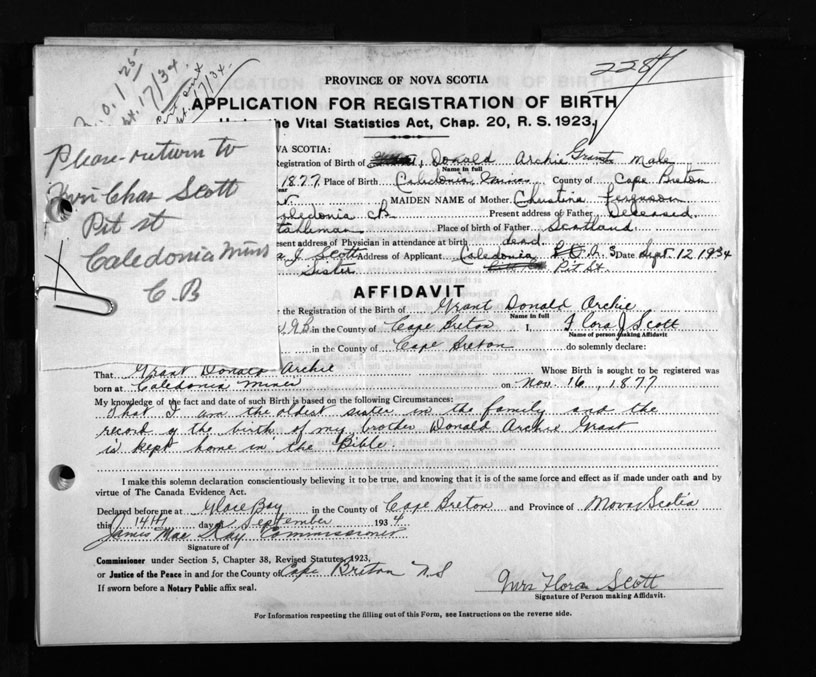 2287
25
17/34
17/34
PROVINCE OF NOVA SCOTIA
APPLICATION FOR REGISTRATION OF BIRTH
the Vital Statistics Act, Chap. 20, R. S. 1923.
Please return to
Chas Scott
Pit st
Caledonia Mines
C. B
VA SCOTIA:
Registration of Birth of Donald Archie Grant Male
Name in full
1877 Place of Birth Caledonia Mines County of Cape Breton
MAIDEN NAME of Mother Christina Ferguson
ledonia CB Present address of Father Deceased.
Place of birth of Father Scotland
sent address of Physician in attendance at birth dead.
J. Scott Address of Applicant Caledonia Date Sept. 12 1934
Sister Pit St
AFFIDAVIT
the Registration of the Birth of Grant Donald Archie
Name in full
in the County of Cape Breton I, Flora J Scott
Name of person making Affidavit
in the County of Cape Breton do solemnly declare:
That Grant Donald Archie Whose Birth is sought to be registered was
born at Caledonia Mines on Nov. 16, 1877
My knowledge of the fact and date of such Birth is based on the following Circumstances:
That I am the oldest sister in the family and the
record of the birth of my brother Donald Archie Grant
is kept home in the Bible.
I make this solemn declaration conscientiously believing it to be true, and knowing that it is of the same force and effect as if made under oath and by
virtue of The Canada Evidence Act.
Declared before me at Glace Bay in the County of Cape Breton and Province of Nova Scotia
this 14th day of September 1934
James Mac Kay Commissioner
Signature of
Commissioner under Section 5, Chapter 38, Revised Statutes, 1923,
or Justice of the Peace in and for the County of Cape Breton N S
If sworn before a Notary Public affix seal.
Mrs Flora Scott
Signature of Person making Affidavit.
For Information respecting the filling out of this Form, see Instructions on the reverse side.